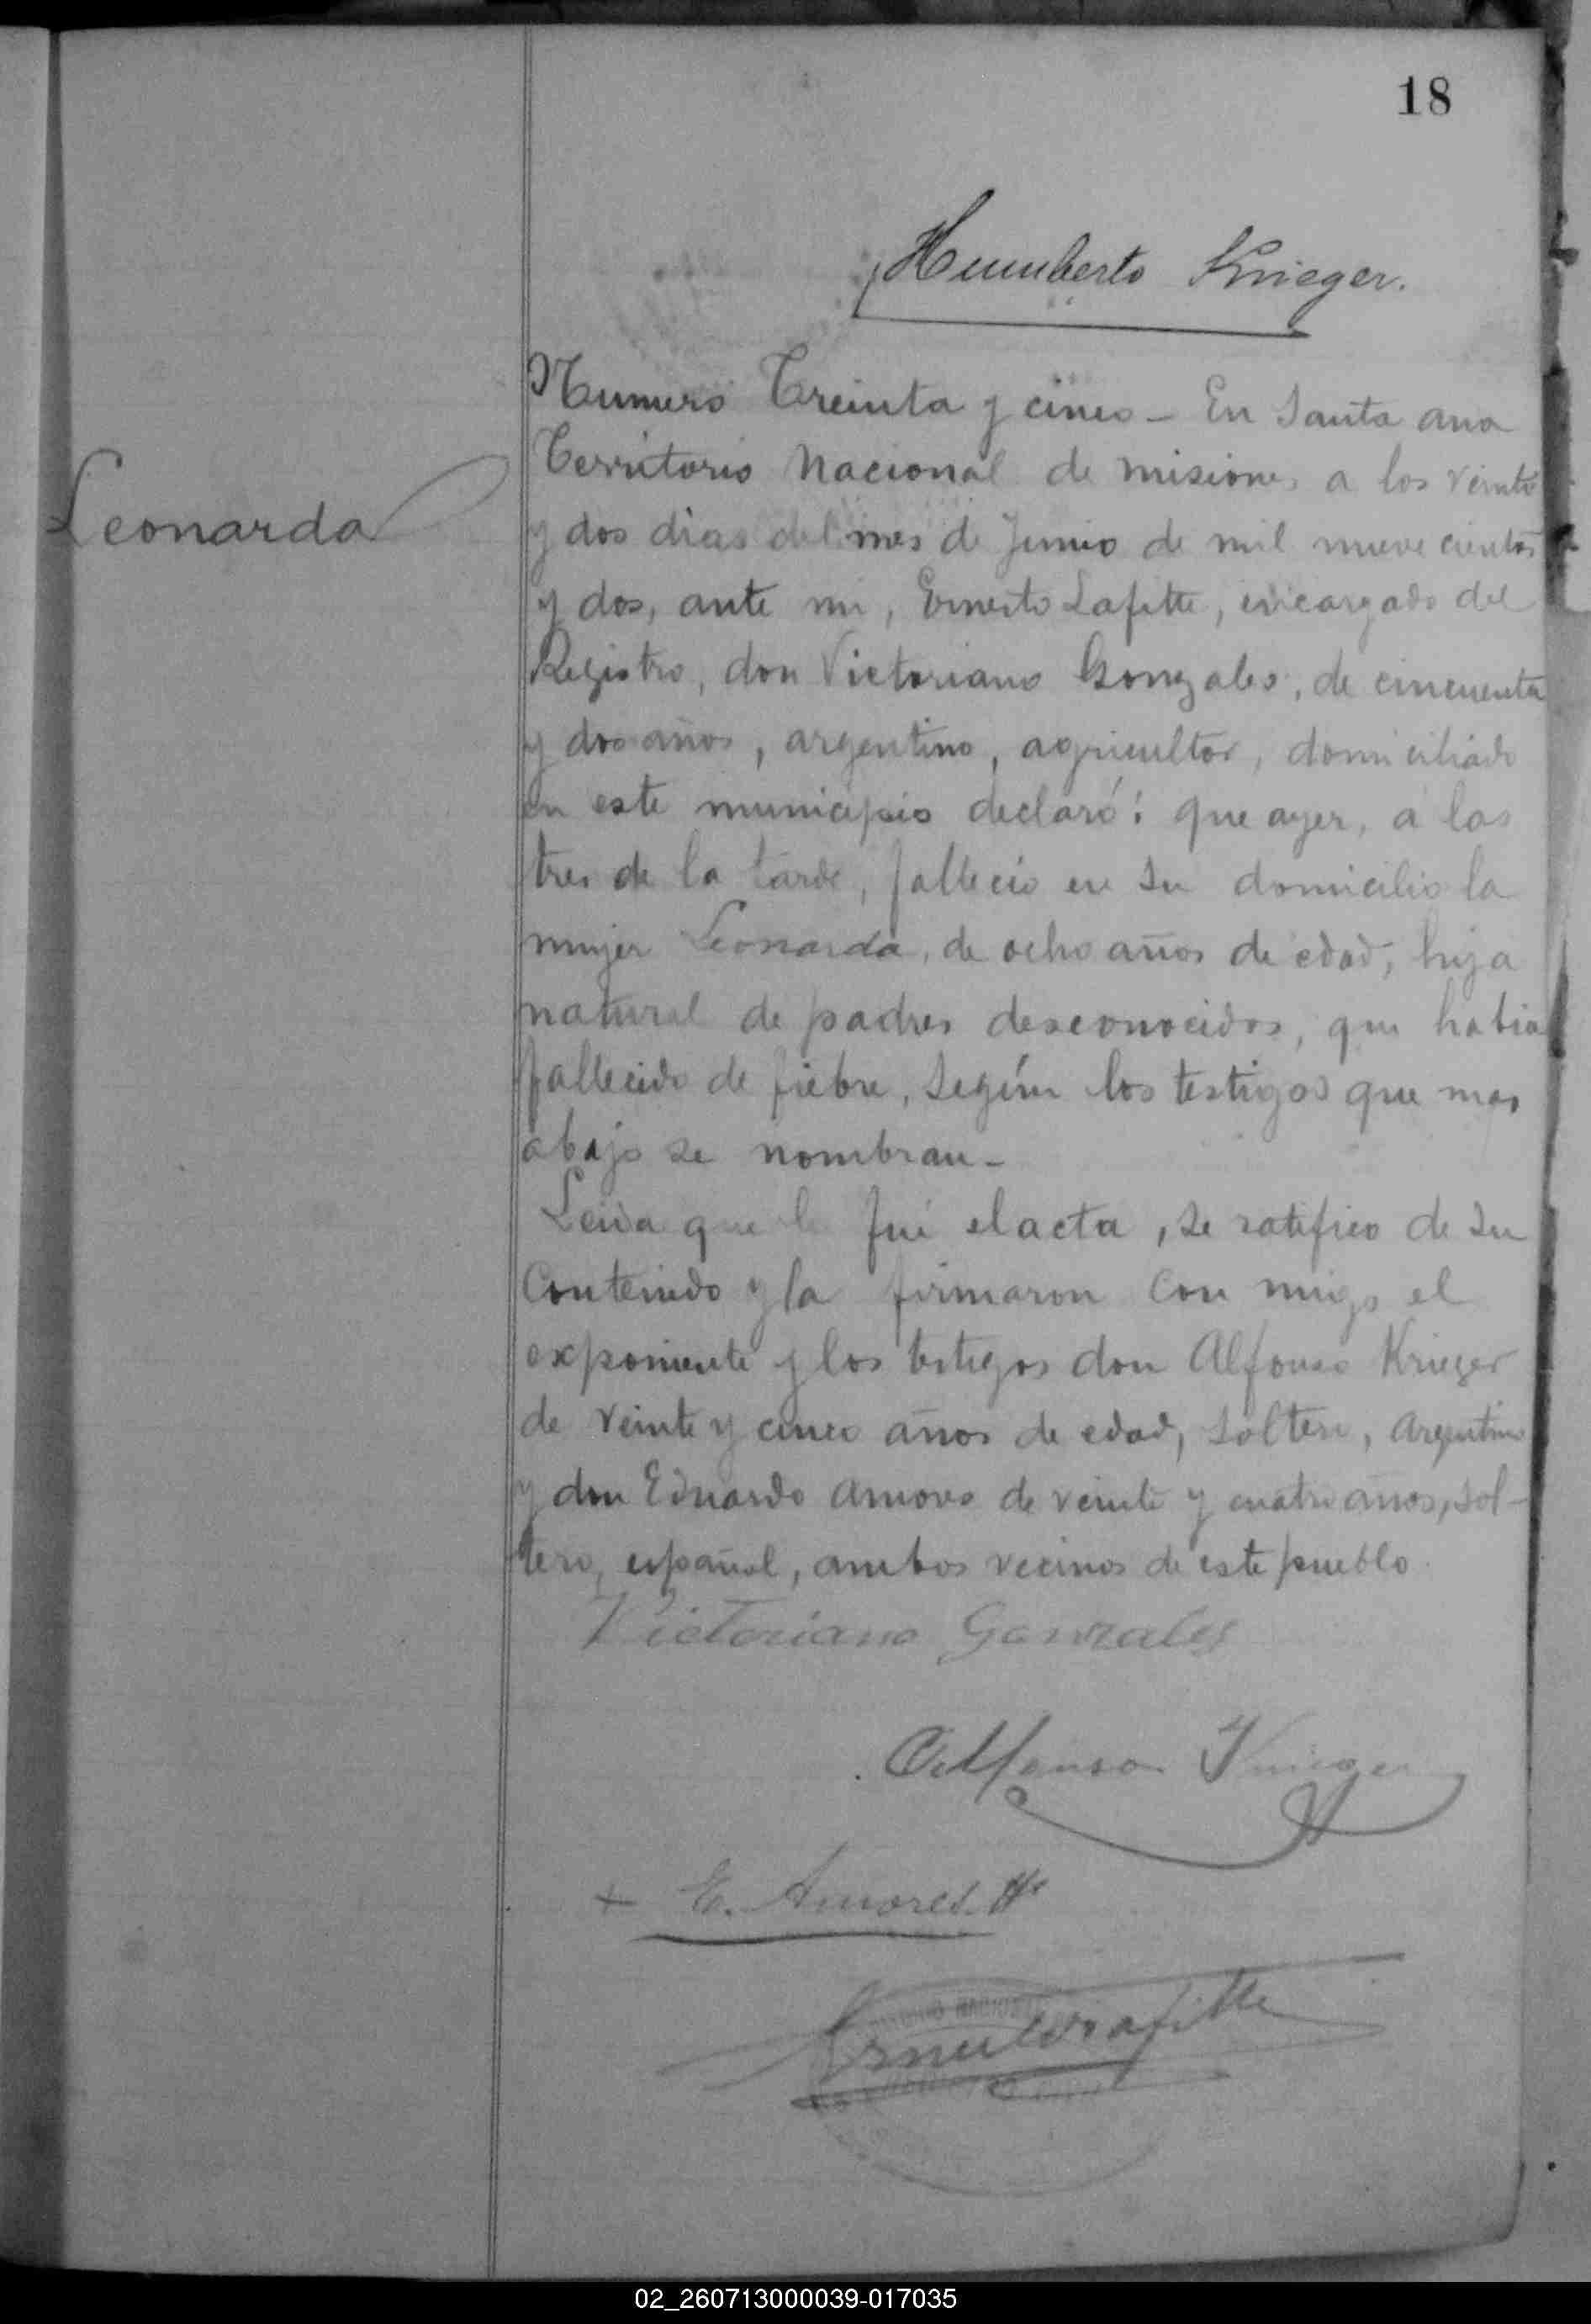 18
Humberto Krieger.
Leonarda
Numero Treinta y cinco - En Santa ana
Territorio Nacional de misiones a los veinte
y dos dias del mes de Junio de mil nueve cientos
y dos, ante mi, Ernesto Lafitte, encargado del
Registro, don Victoriano Gonzales, de cincuenta
y dos años, argentino, agricultor, domiciliado
en este municipio declaró: que ayer, a las
tres de la tarde, fallecio en su domicilio la
mujer Leonarda, de ocho años de edad, hija
natural de padres desconocidos, que habia
fallecido de fiebre, según los testigos que mas
abajo se nombran -
Leida que le fué el acta, se ratifico de su
Contenido y la firmaron con migo el
exponiente y los testigos don Alfonso Krieger
de veinte y cinco años de edad, soltero, Argentino
y don Eduardo Amores de veinte y cuatro años, sol-
tero, español, ambos vecinos de este pueblo.
Victoriano Gonzales
Alfonso Krieger
E. Amores
Ernesto Lafitte
02_260713000039-017035